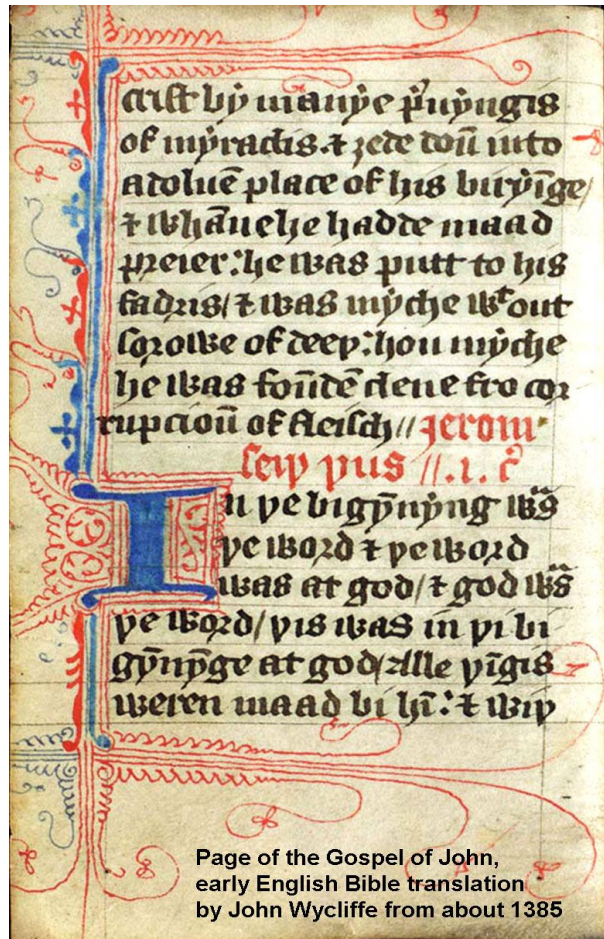 crist bẏ manẏe p̉uẏngis
of mẏraclis ⁊ ȝede doū into
a doluē place of his biriȳge/
⁊ whāne he hadde maad
preier: he was putt to his
fadris/ ⁊ was mẏche wᵗout
sorowe of deeþ: hou mẏche
he was foūdē clene fro cor
rupcioū of fleisch // Jerom
seiþ þus //.1. c̉
In þe bigẏ̄nẏng wᵃs
þe word ⁊ þe word
was at god/ ⁊ god wᵃs
þe word/ þis was in þi bi
gẏ̄nẏ̄ge at god/ Alle þīgis
weren maad bi hī: ⁊ wiþ
Page of the Gospel of John,
early English Bible translation
by John Wycliffe from about 1385